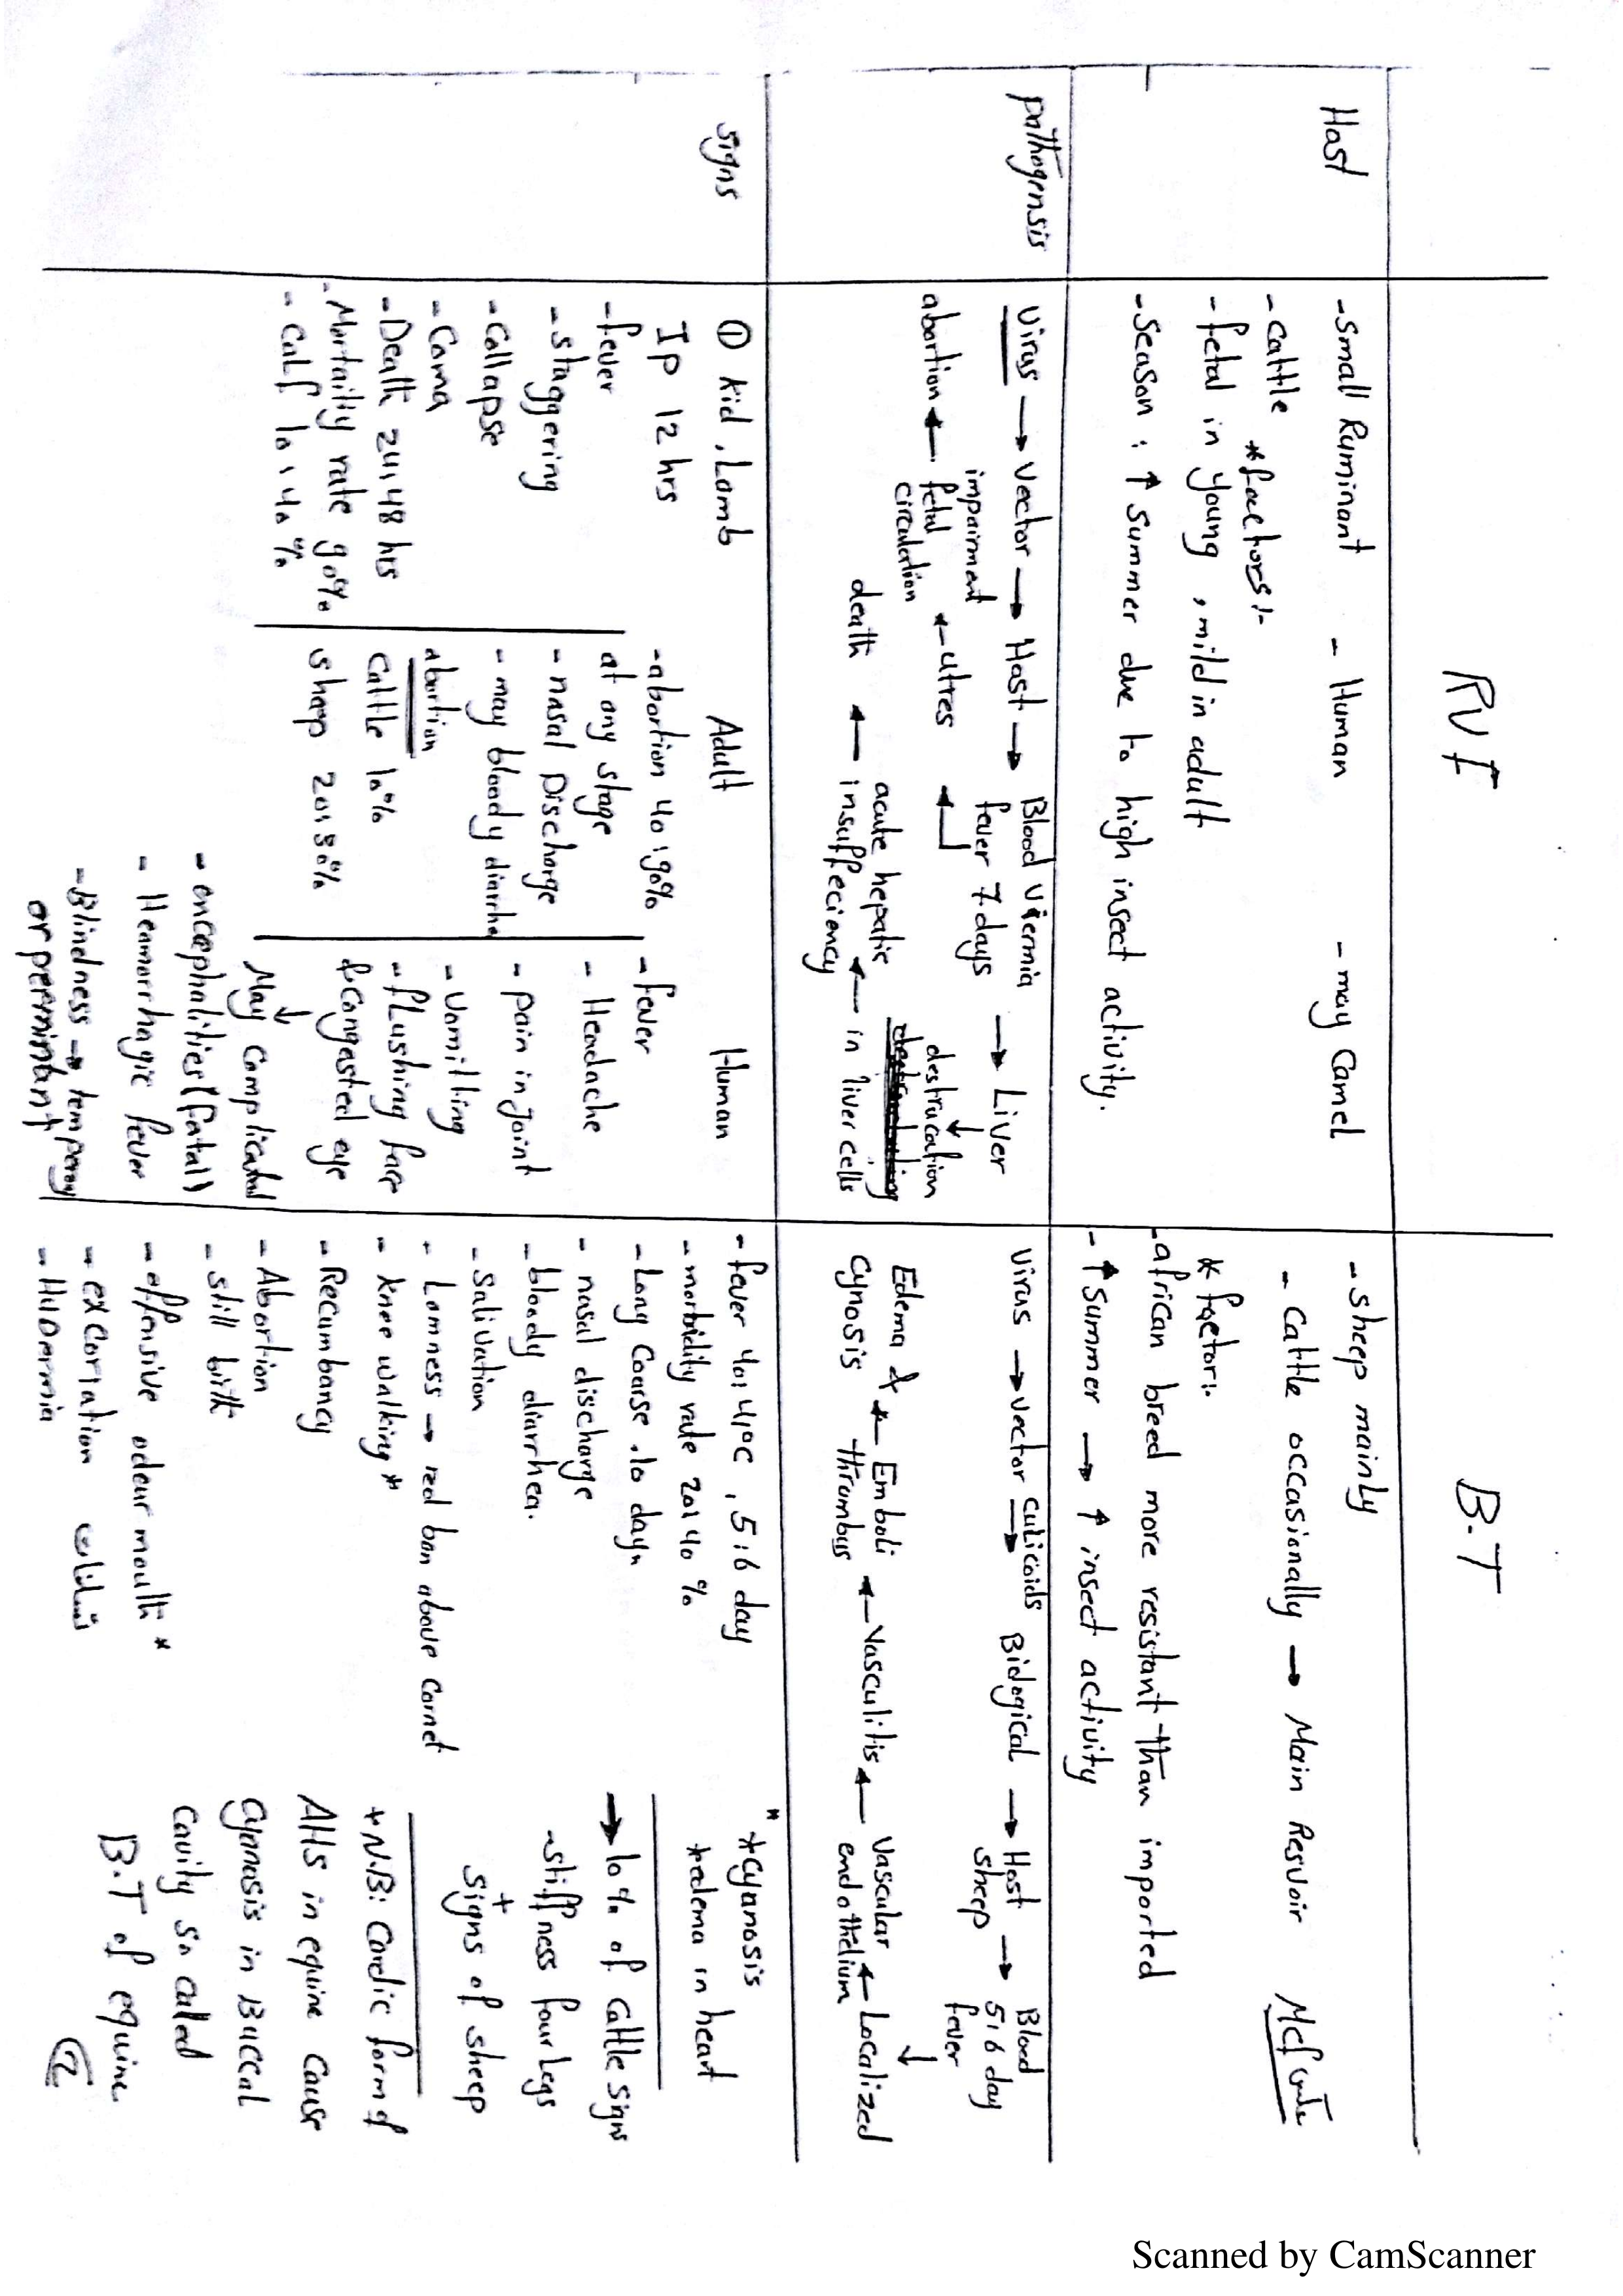 RVF
B.T
Host
-small Ruminant - Human - may Camel
-cattle *factors:-
-fetal in young , mild in adult
-Season : ↑ summer due to high insect activity.
-sheep mainly
- Cattle occasionally → Main Resvoir
* factor:-
-african breed more resistant than imported
-↑summer → ↑ insect activity
pathogensis
Virus → Vector → Host → Blood viremia → Liver
fever 7 days
destrucation
in liver cells
acute hepatic
insuffeciency
death
←utres
impairment
fetal
circulation
abortion
Virus → vector culicoids Biological → Host → Blood
sheep 5:6 day
fever
Localized
Vascular
endothelium
←Vasculitis
Emboli
thrombus
Edema &
Cynosis
signs
① kid , Lamb
Ip 12 hrs
-fever
-staggering
-Collapse
-Coma
-Death 24:48 hrs
-Mortailty rate 90%
- Calf 10:40 %
Adult
-abortion 40:90%
at any stage
- nasal Discharge
- may bloody diarrhea
abortion
Cattle 10%
sheap 20:30%
Human
-fever
- Headache
- pain in joint
- Vomitting
-flushing face
& Congasted eye
↓
May Complicated
- encephalities (fatal)
- Heamorrhagic fever
-Blindness → tempery
or perminant
- fever 40:41°C , 5:6 day
-morbidity rate 20:40 %
-Long Coarse . 10 days
- nasal discharge
- bloody diarrhea.
- Salivation
- Lamness → red ban above Cornet
- knee walking *
- Recumbancy
- Abortion
- still birth
- offensive odeur mouth *
- exCoriation
*cyanosis
*edema in heart
→10% of Cattle signs
-stiffness four legs
+
signs of sheep
*N.B: Cardic form of
AHS in equine cause
Cyanosis in Buccal
Cavity so called
B.T of equine
Scanned by CamScanner